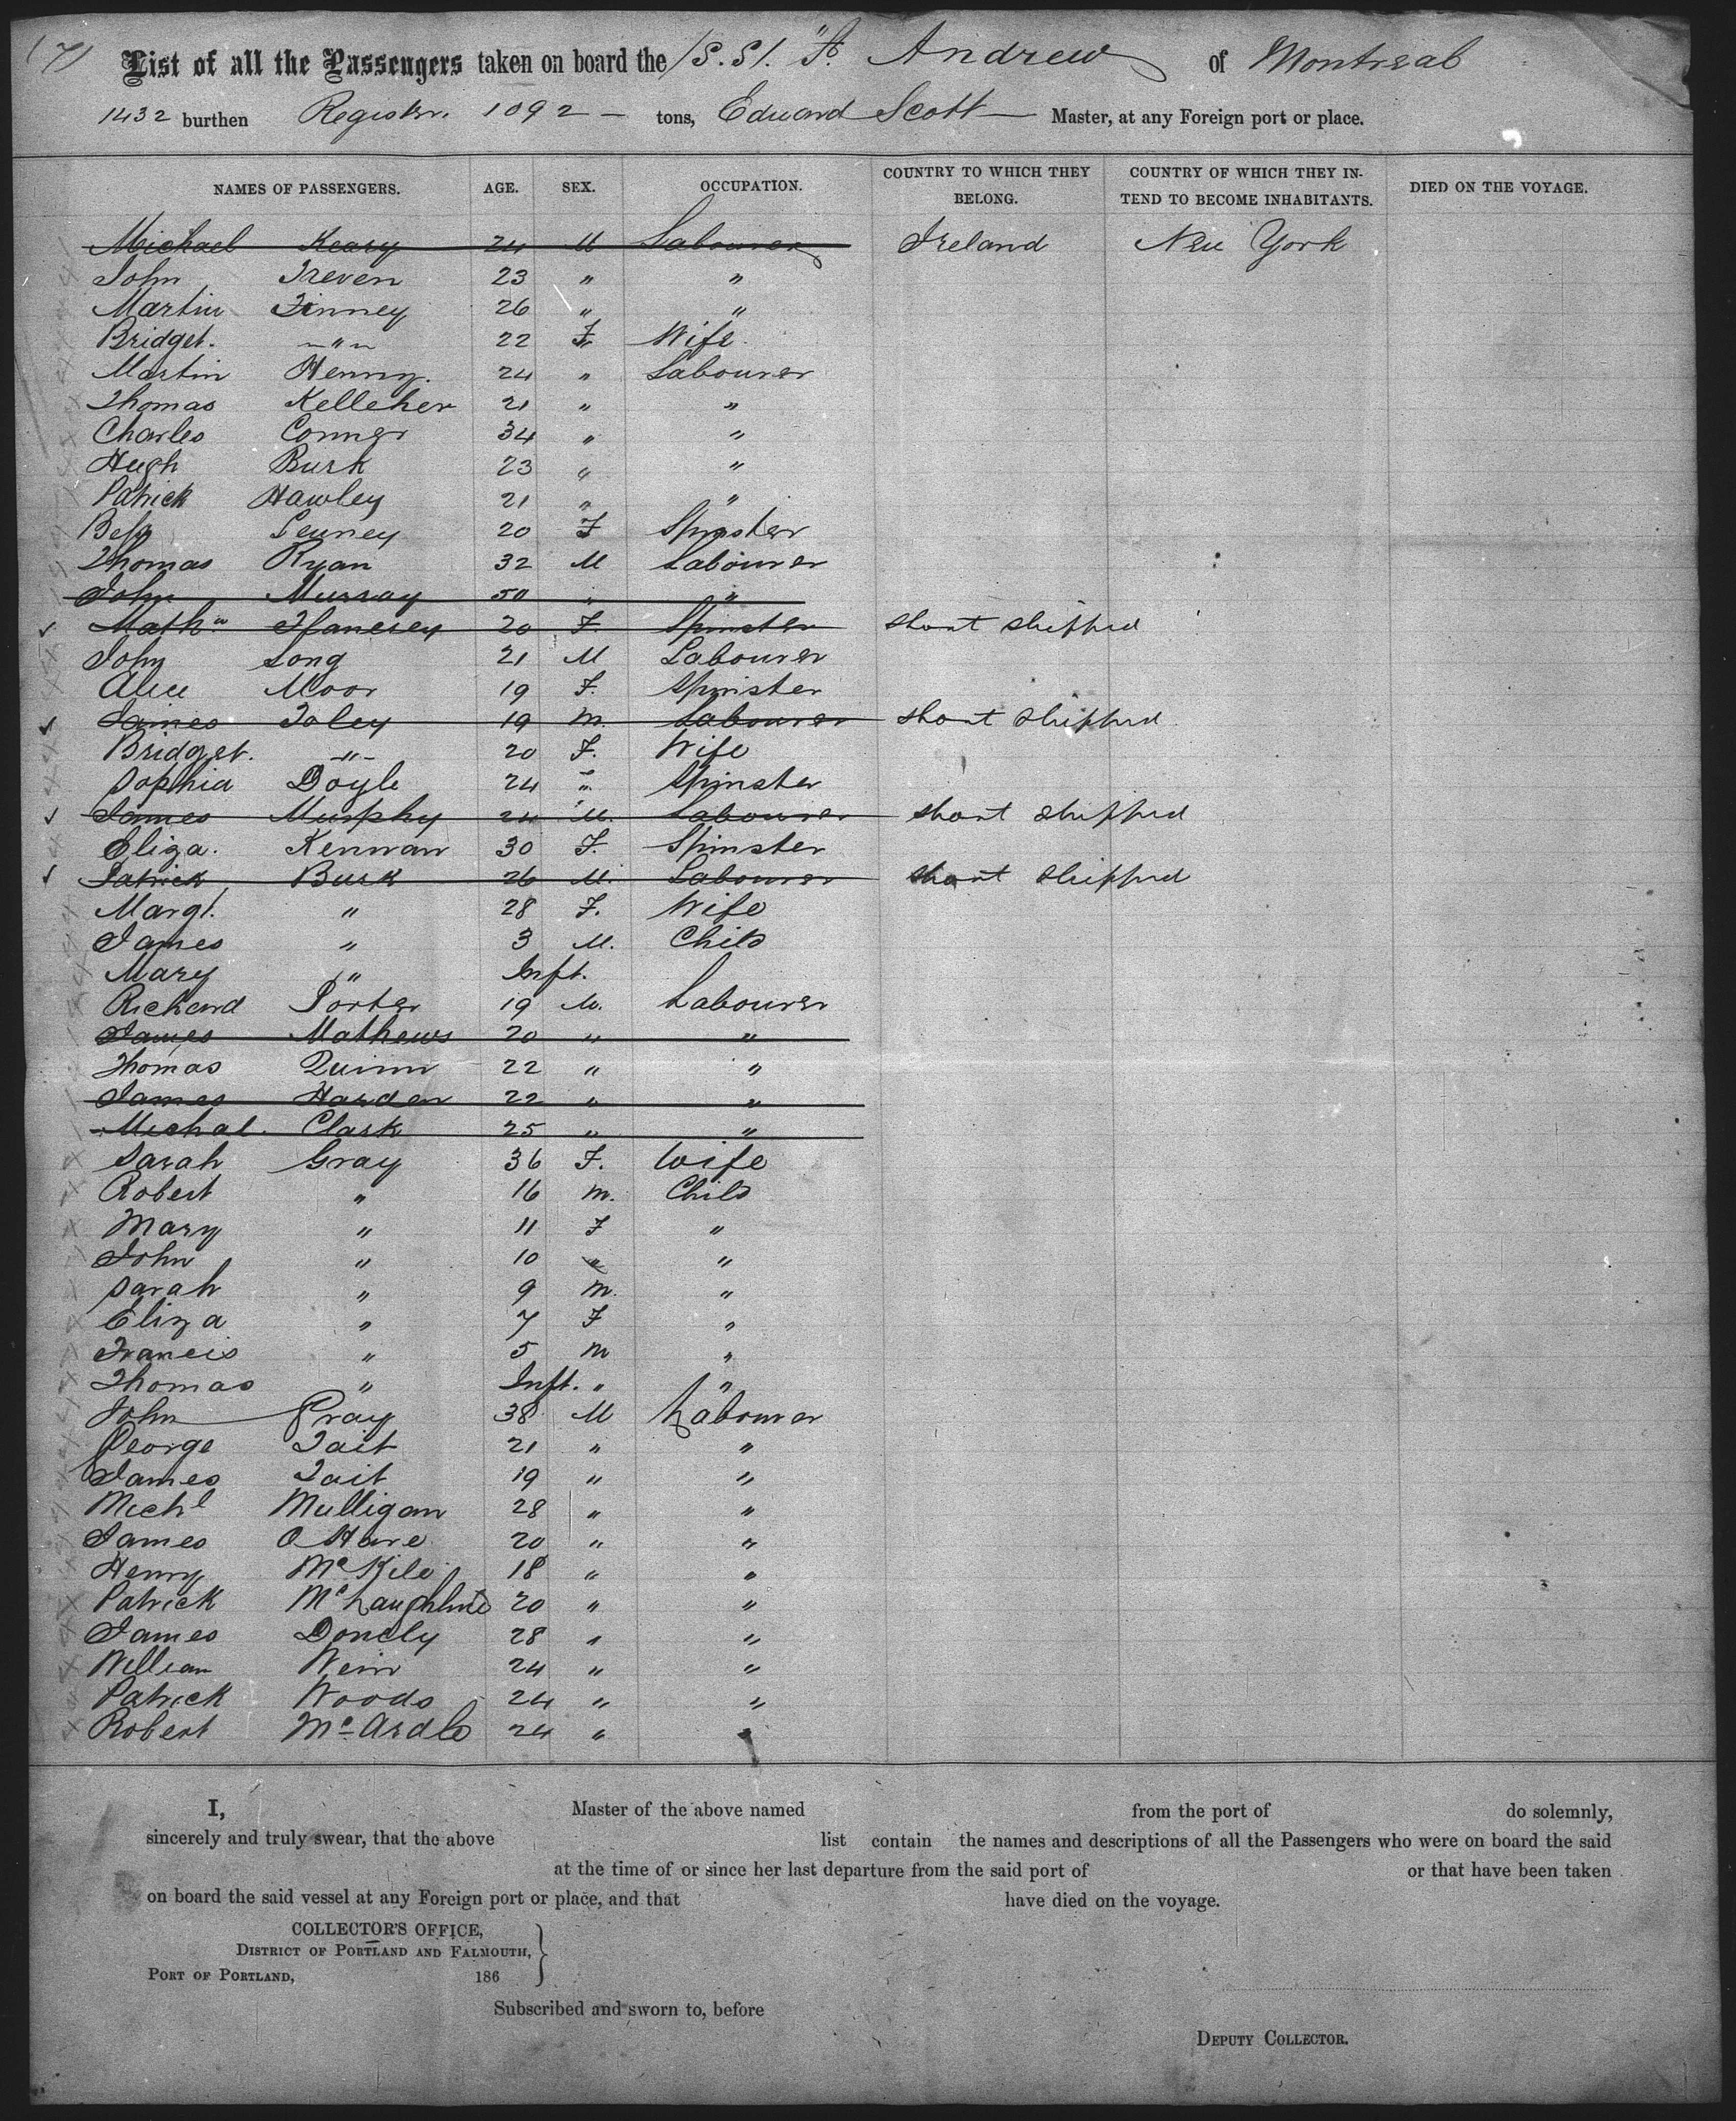 (7) List of all the Passengers taken on board the (S.S). "St. Andrew of Montreal
1432 burthen Register. 1092 — tons, Edward Scott — Master, at any Foreign port or place.
NAMES OF PASSENGERS. AGE. SEX. OCCUPATION. COUNTRY TO WHICH THEY BELONG. COUNTRY OF WHICH THEY INTEND TO BECOME INHABITANTS. DIED ON THE VOYAGE.
Michael Keary 24 M Labourer Ireland New York
John Treven 23 " "
Martin Finney 26 " "
Bridget. —"— 22 F Wife.
Martin Henry. 24 " Labourer
Thomas Kelleher 21 " "
Charles Conner 34 " "
Hugh Burk 23 " "
Patrick Hawley 21 " "
Bessy 20 F Spinster
Thomas Ryan 32 M Labourer
John Murray 50 " "
20 F. Spinster short shipped
John Long 21 M Labourer
Alice Moor 19 F. Spinster
James Foley 19 M. Labourer short shipped
Bridget. —"— 20 F. Wife
Sophia Doyle 24 " Spinster
James Murphy 24 M. Labourer short shipped
Eliza. Kerwan 30 F. Spinster
Patrick Burk 26 M. Labourer short shipped
Margt. " 28 F. Wife
James " 3 M. Child
Mary " Inft.
Richard Porter 19 M. Labourer
James Mathews 20 " "
Thomas Quinn 22 " "
James Harden 22 " "
Michal. Clark 25 " "
Sarah Gray 36 F. Wife
Robert " 16 M. Child
Mary " 11 F "
John " 10 " "
Sarah " 9 M. "
Eliza " 7 F "
Francis " 5 M "
Thomas " Inft. " "
John Gray 38 M Labourer
George Tait 21 " "
James Tait 19 " "
Michl Mulligan 28 " "
James O Hare 20 " "
Henry 18 " "
Patrick McLaughlin 20 " "
James Donely 28 " "
William Weir 24 " "
Patrick Woods 24 " "
Robert McArdle 24 " "
I, Master of the above named from the port of do solemnly,
sincerely and truly swear, that the above list contain the names and descriptions of all the Passengers who were on board the said
at the time of or since her last departure from the said port of or that have been taken
on board the said vessel at any Foreign port or place, and that have died on the voyage.
COLLECTOR'S OFFICE,
DISTRICT OF PORTLAND AND FALMOUTH,
PORT OF PORTLAND, 186
Subscribed and sworn to, before
DEPUTY COLLECTOR.